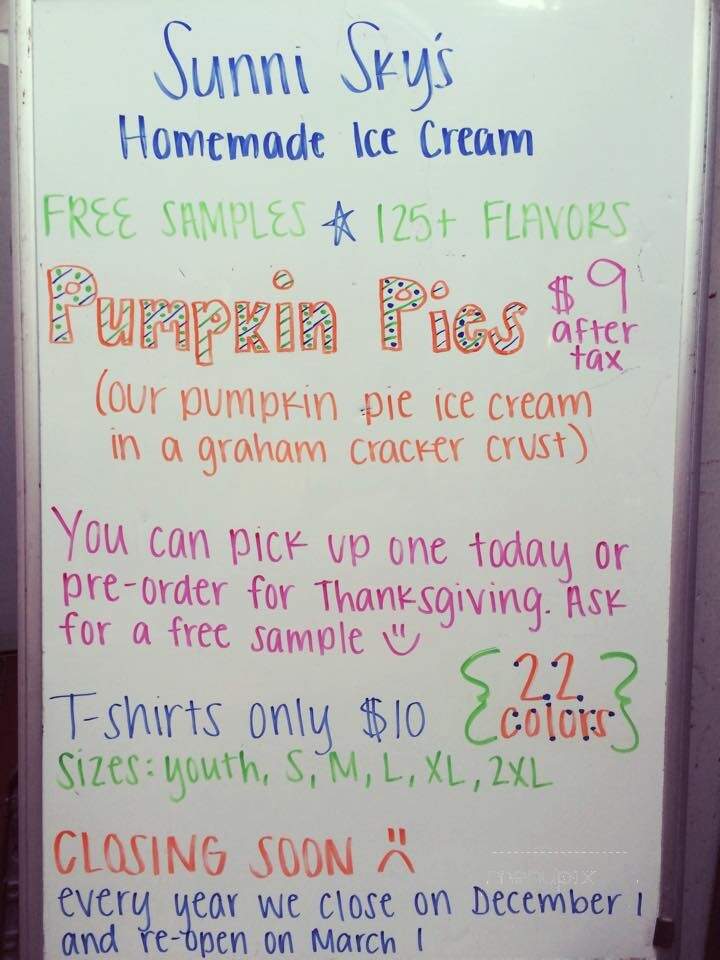 Sunni Sky's
Homemade Ice Cream
FREE SAMPLES ☆ 125+ FLAVORS
Pumpkin Pies $9
after
tax
(our pumpkin pie ice cream
in a graham cracker crust)
You can pick up one today or
pre-order for Thanksgiving. Ask
for a free sample
T-shirts only $10
{22
colors}
Sizes: youth, S, M, L, XL, 2XL
CLOSING SOON
every year we close on December 1
and re-open on March 1